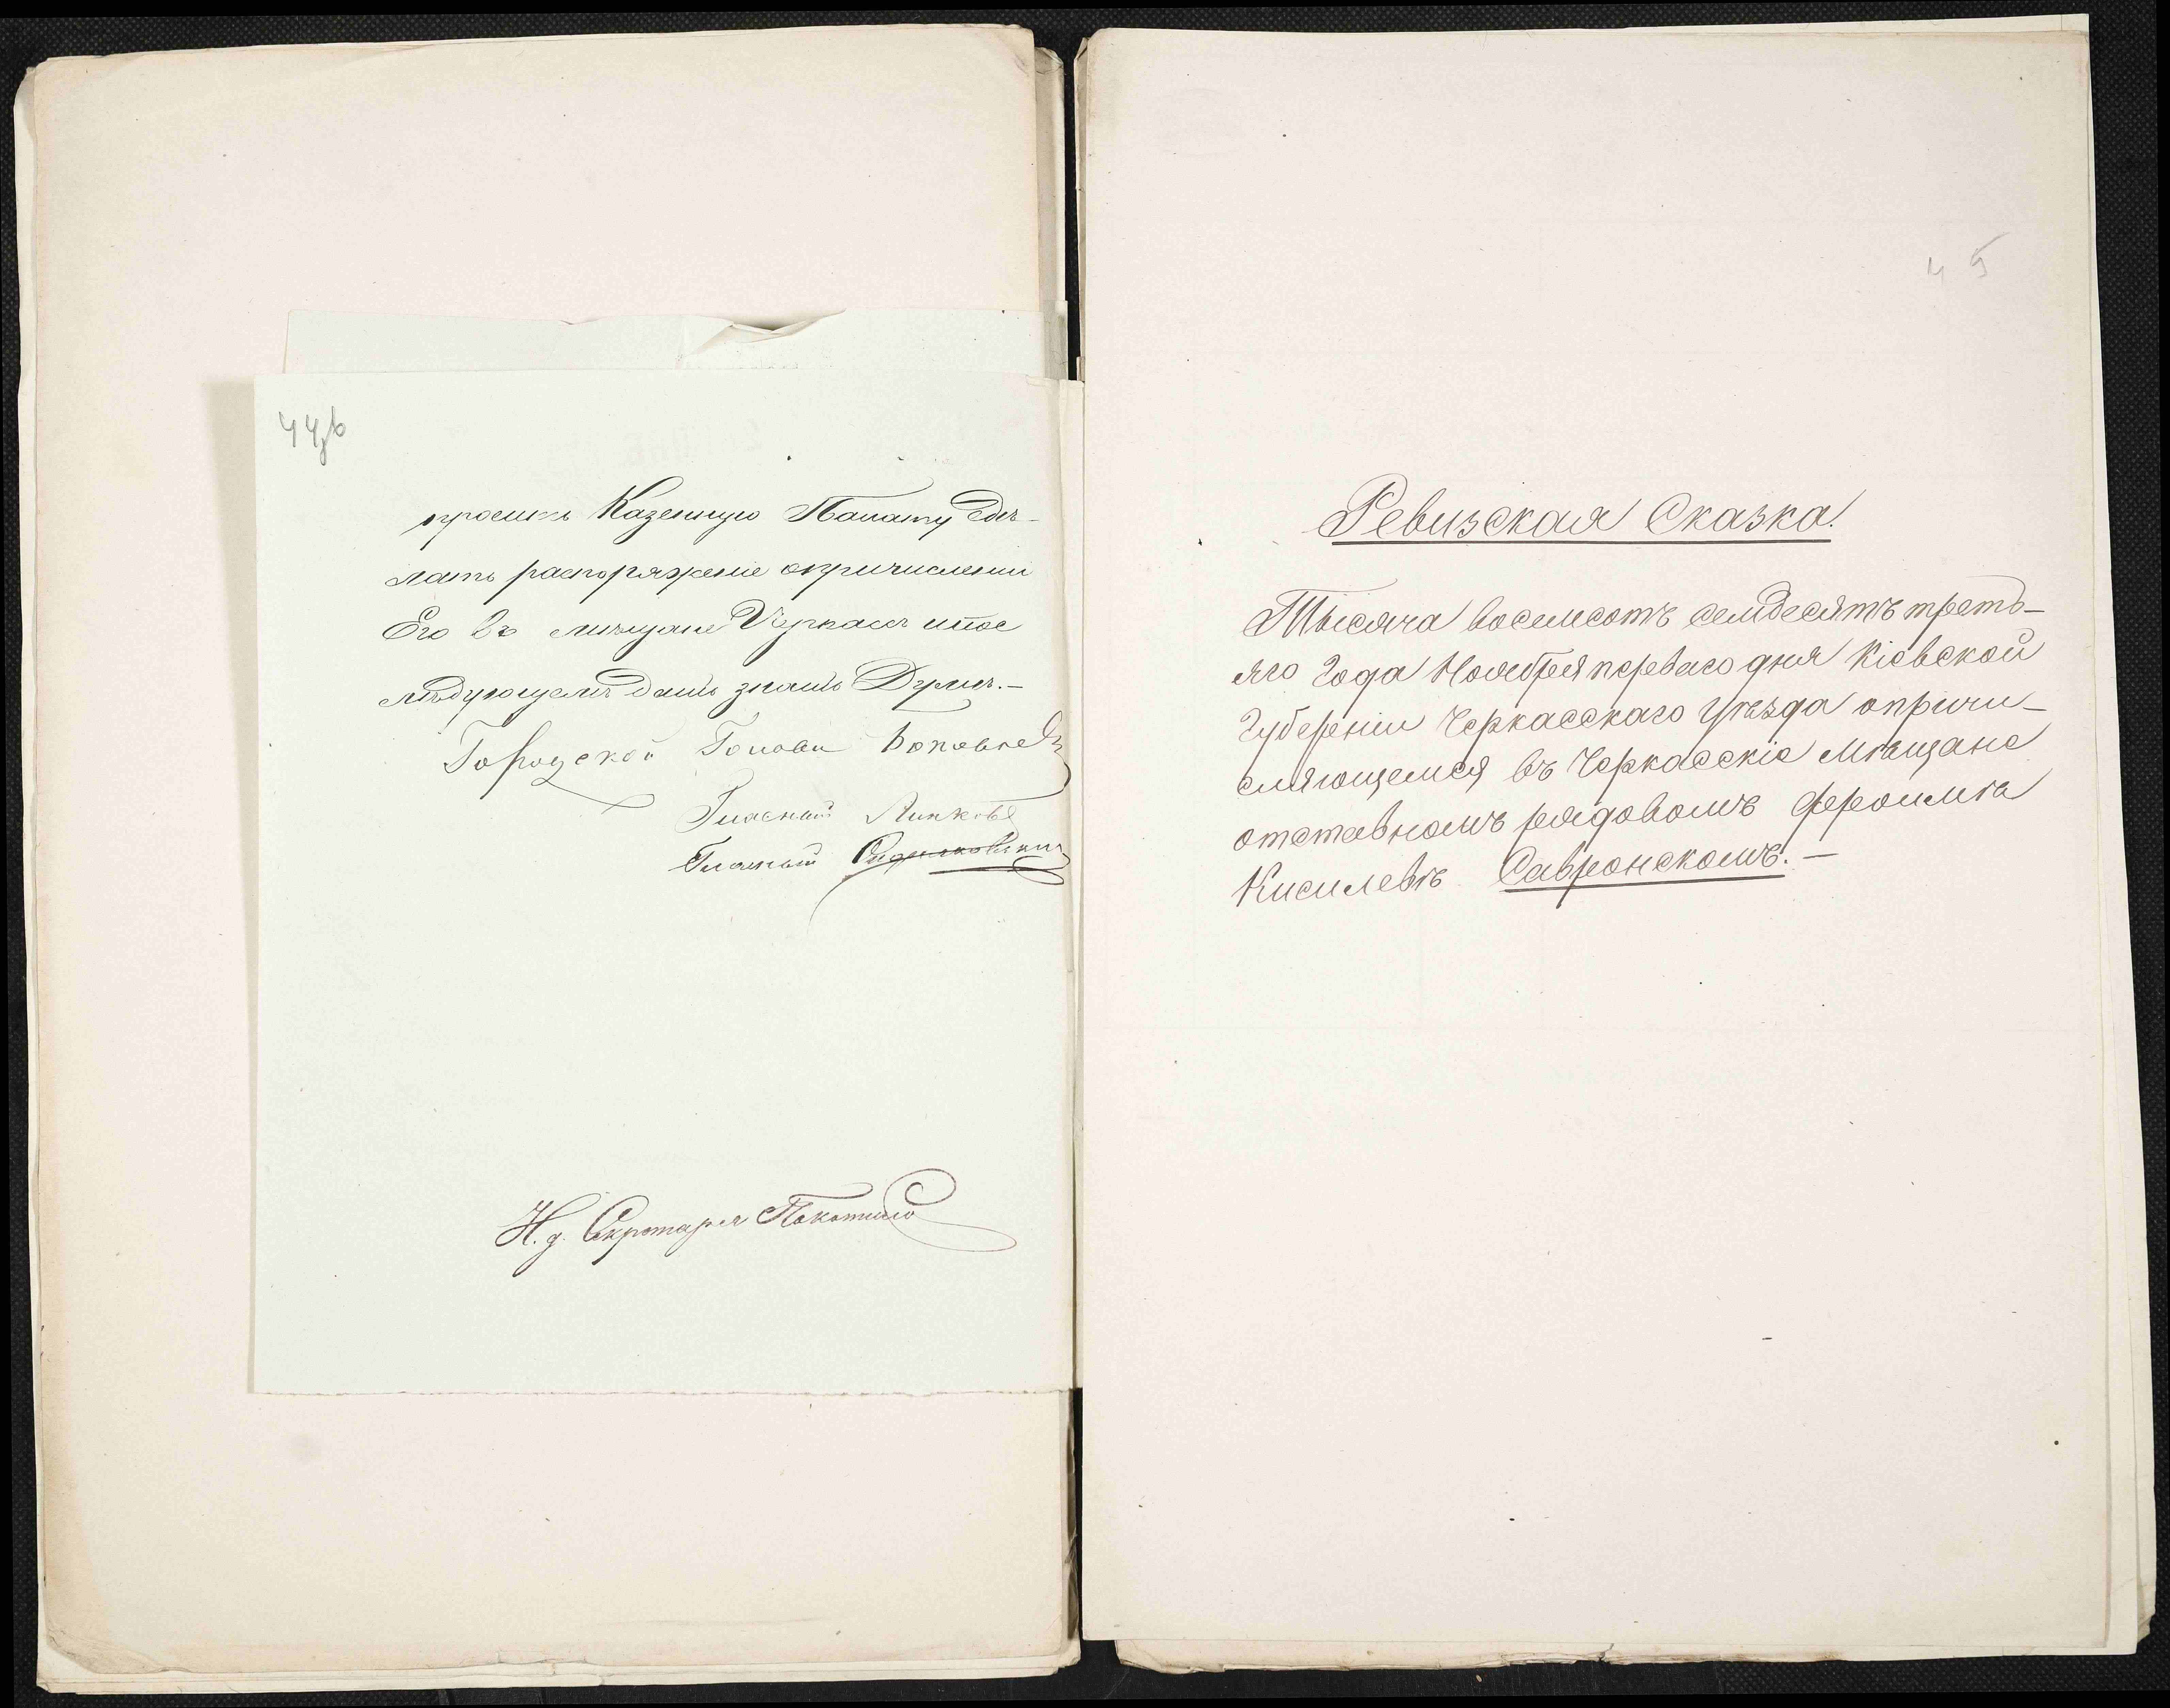 44зв
проситъ Казенную Палату сдѣ-
лать распоряженіе опричисленіи
Его въ мѣщане Черкасъ ипос
лѣдующемъ дать знать Думѣ.-
Городской Голова
Гласный
Гласный
И. д. Секретаря Покотило
45
Ревизская Сказка.
Тысяча восемсотъ семдесятъ треть-
яго года Ноября перваго дня Кіевской
Губерніи Черкасскаго уѣзда опричи-
сляющемся въ Черкасскіе Мѣщане
отставномъ рядовомъ Фроимѣ
Кисилевѣ Савронскомъ.-